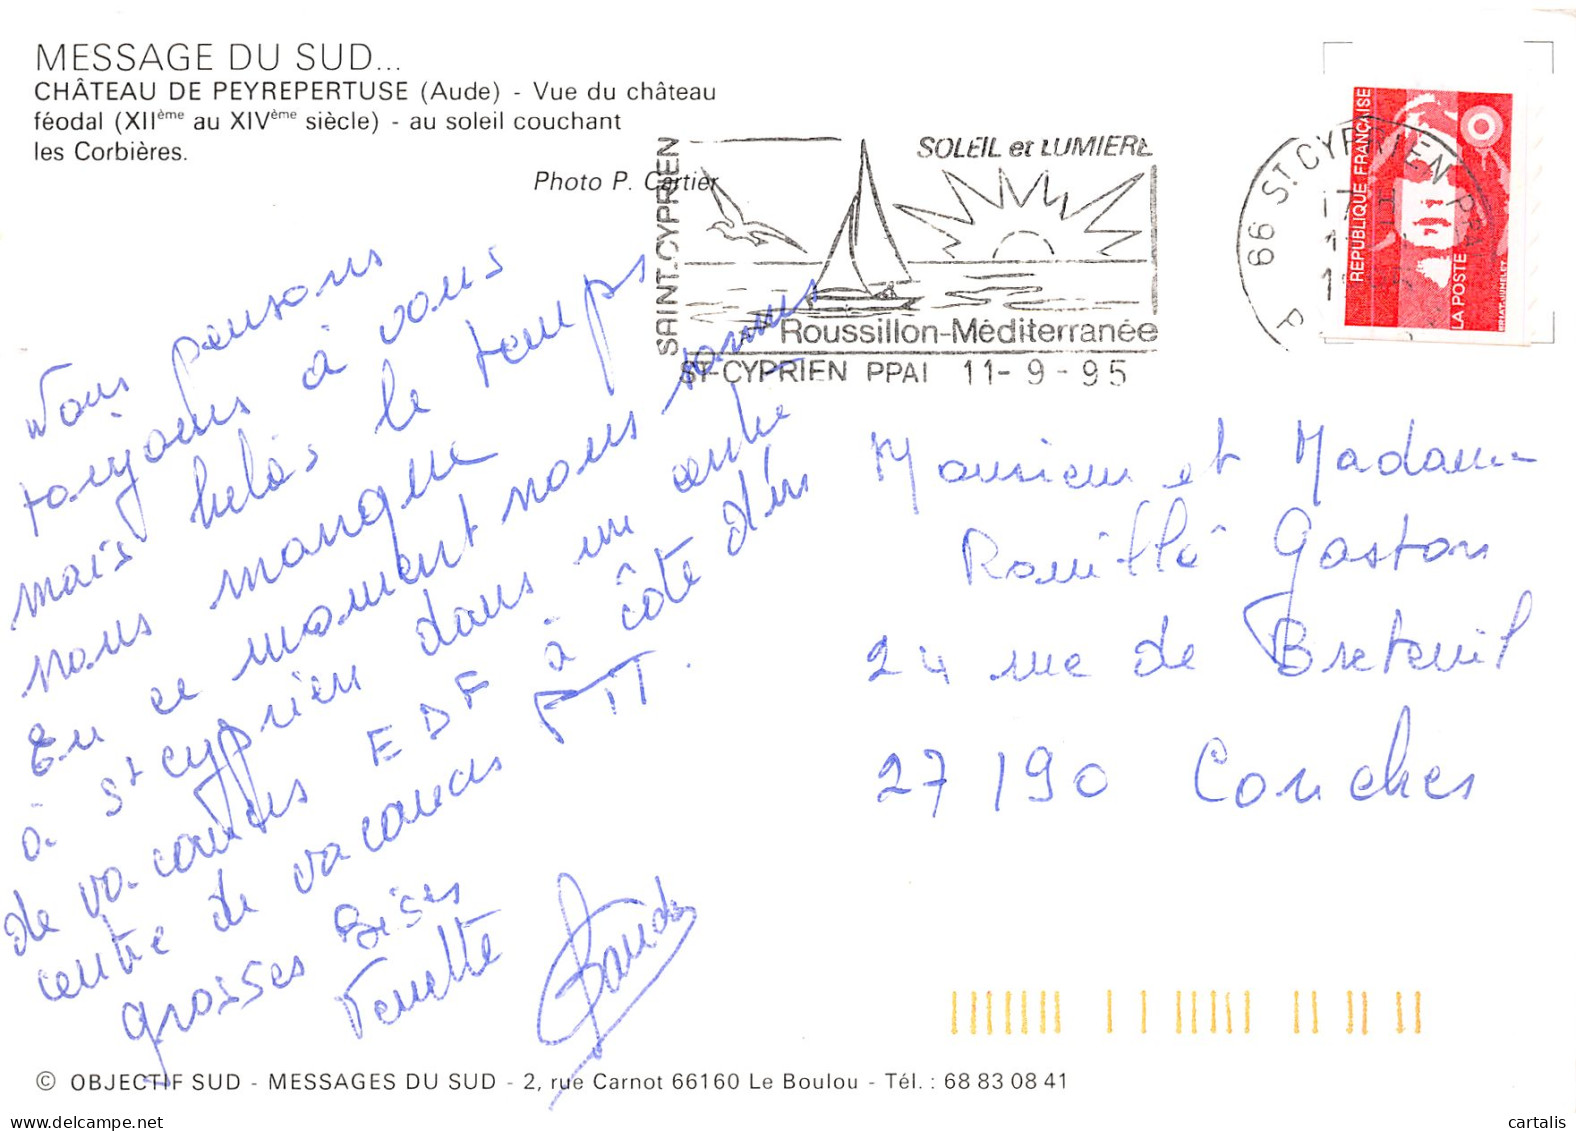 MESSAGE DU SUD...
CHÂTEAU DE PEYREPERTUSE (Aude) - Vue du château
féodal (XIIème au XIVème siècle) - au soleil couchant
les Corbières.
Photo P. Cartier
SAINT-CYPRIEN
SOLEIL et LUMIERE
Roussillon-Méditerranée
ST-CYPRIEN PPAL 11-9-95
66 ST CYPRIEN
REPUBLIQUE FRANÇAISE
LA POSTE
Nous pensons
toujours à vous
mais helàs le temps
nous manque
En ce moment nous sommes
à St cyprien dans un centre
de vacances EDF à côté d'un
centre de vacances PTT.
grosses Bises
Monsieur et Madame
Rouillé Gaston
24 rue de Breteuil
27190 Conches
© OBJECTIF SUD - MESSAGES DU SUD - 2, rue Carnot 66160 Le Boulou - Tél. : 68 83 08 41
delcampe.net
cartalis